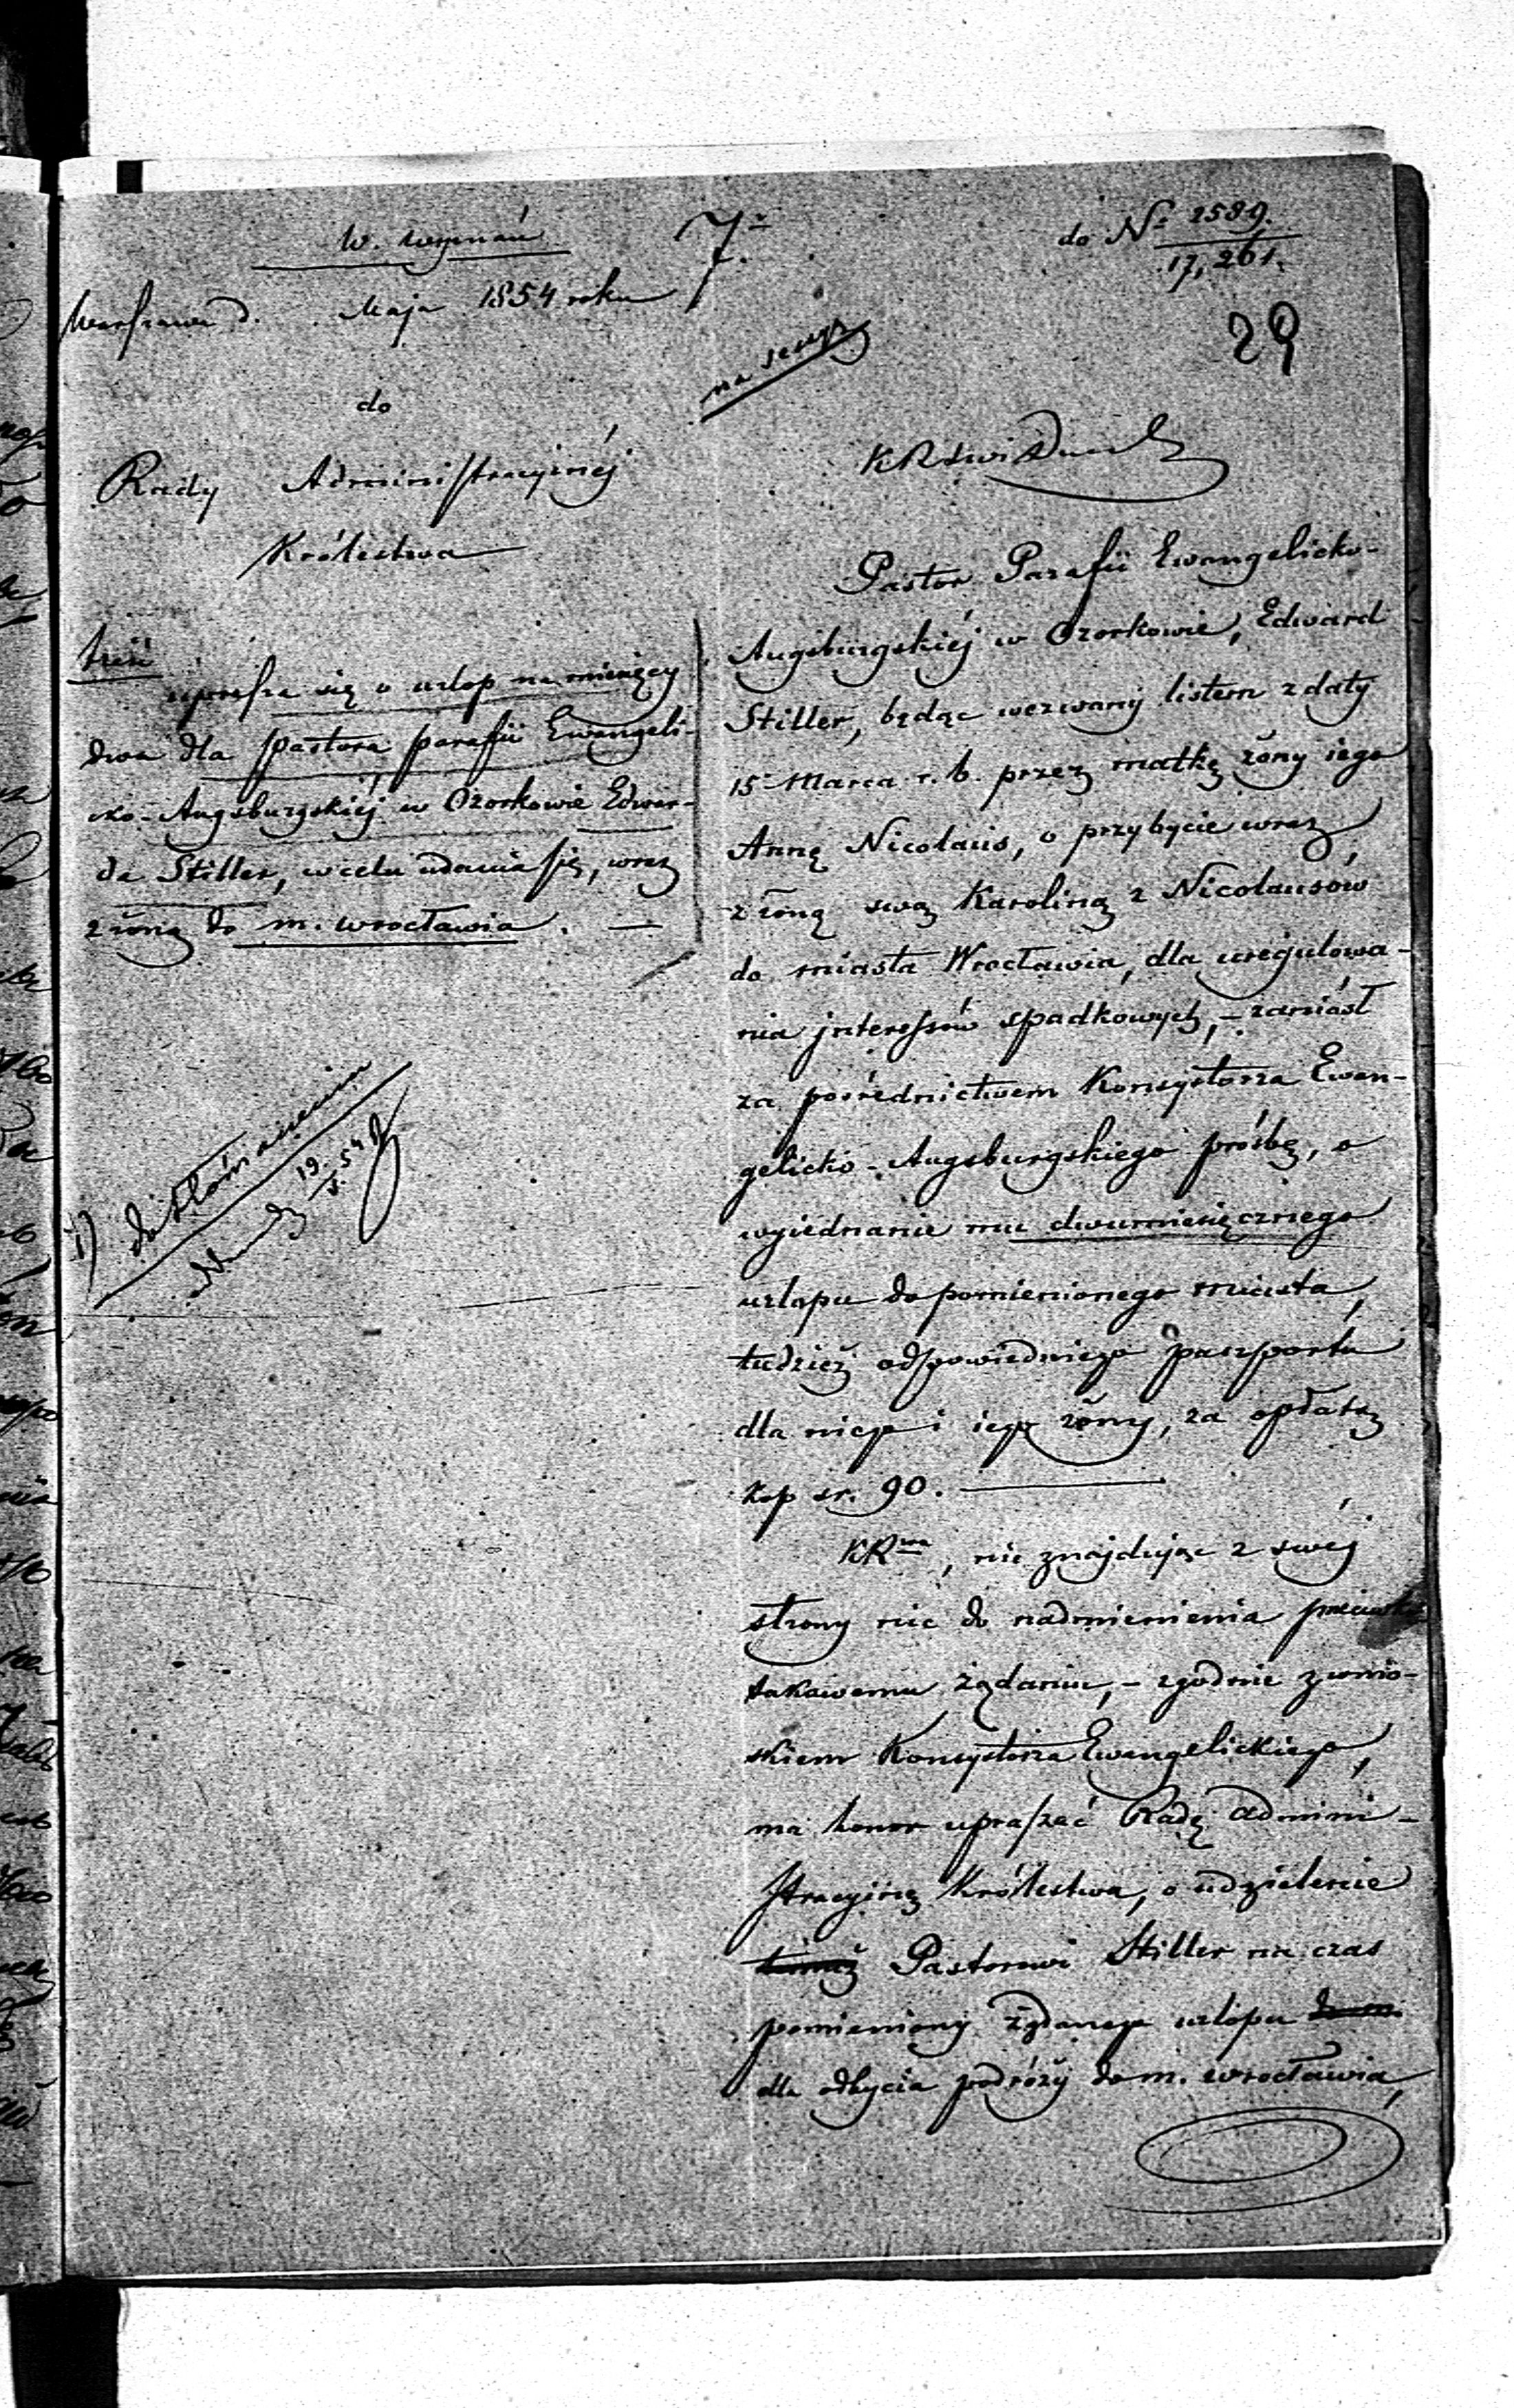 W. wyznań
7.
do Nº 2589.
17,261.
29
Warszawa d. Maja 1854 roku
na sessyą
do
Rady Administracyinéj
Królestwa
treść
uprasza się o urlop na miesięcy
dwa dla pastora parafii Ewangeli-
cko-Augsburgskiéj w Ozorkowie Edwar-
da Stiller, w celu udania się, wraz
z żoną do m. Wrocławia. —
do tłómaczenia
19/5. 54
KRSWiD
Pastor Parafii Ewangelicko-
Augsburgskiéj w Ozorkowie, Edward
Stiller, będąc wezwany listem z daty
15 Marca r. b. przez matkę żony iego
Annę Nicolaus, o przybycie wraz
z żoną swą Karoliną z Nicolausów
do miasta Wrocławia, dla uregulowa-
nia jnteressów spadkowych, – zaniósł
za pośrednictwem Konsystorza Ewan-
gelicko-Augsburgskiego prośbę, o
wyiednanie mu dwumiesięcznego
urlopu do pomienionego miasta,
tudzież odpowiedniego paszportu
dla niego i iego żony, za opłatą
kop sr. 90. —
KRssa, nie znajdując z swéj
strony nic do nadmienienia przeciwko
takowemu żądaniu, – zgodnie z wnio-
skiem Konsystorza Ewangelickiego,
ma honor upraszać Radę Admini-
stracyiną Królestwa, o udzielenie
Pastorowi Stiller na czas
pomieniony żądanego urlopu do m.
dla odbycia podróży do m. Wrocławia,